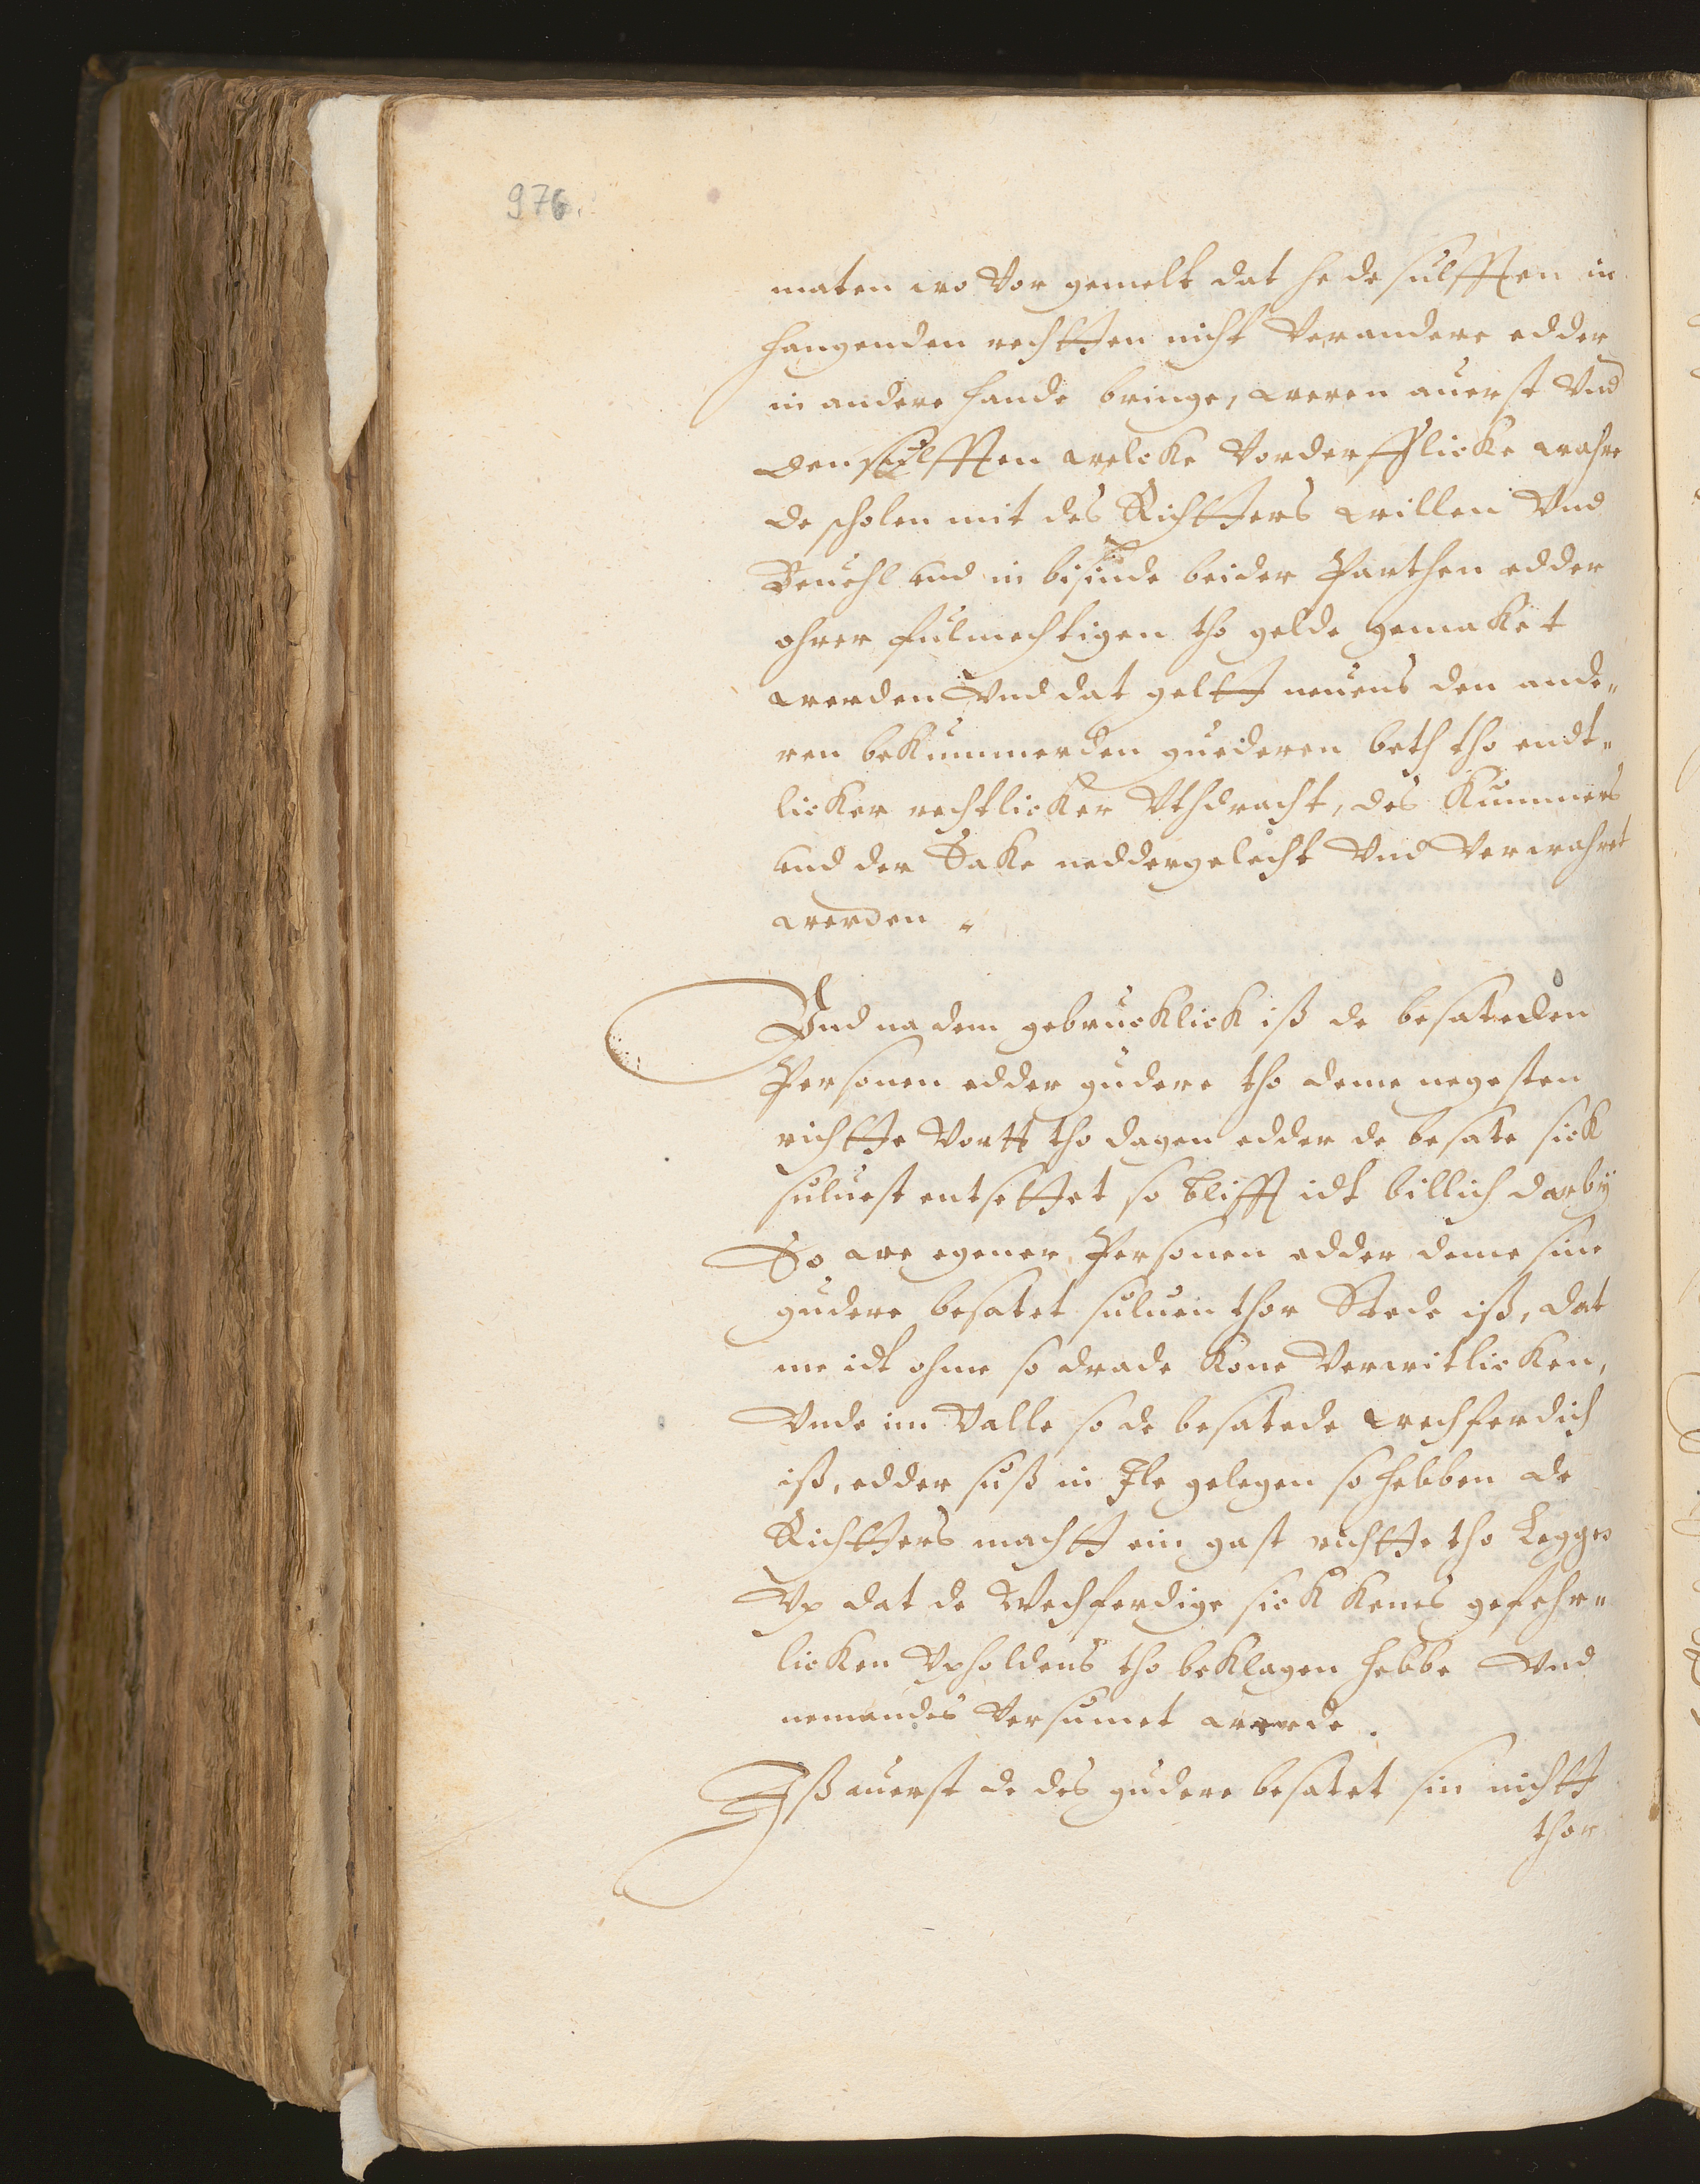 976.
maten wo vor gemelt dat he de sulfften in
hangenden rechtten nicht verandere edder
in andere hande bringe, weren auerst vnd
den sulfften welcke vorderfflicke wahre
de scholen mit des Richtters willen vnd
Beuehl vnd in bisinde beider Parthen edder
ohrer fulmechtigen tho gelde gemaket
werden vnd dat geltt neuens den ande„
ren bekummerden guederen beth tho endt„
licker rechtlicker vthdracht, des Kummers
vnd der Sake neddergelecht vnd verwahret
werden.
Vnd na dem gebrucklick iß de besateden
Personen edder gudere tho deme negesten
richtte vortt tho dagen edder de besate sick
suluest entsettet so bliff idt billich darbÿ
So we egener Personen edder deme sine
gudere besatet suluen thor Stede iß, dat
me idt ohme so drade kone verwitlicken,
vnde im valle so de besatede wechferdich
iß, edder suß in Ile gelegen so hebben de
Richtters machtt ein gast richtte tho leggen
vp dat de Wechferdige sick kenes gefehr„
licken vpholdens tho beklagen hebbe vnd
nemandes versumet werde.
Iß auerst de des gudere besatet sin nichtt
thor